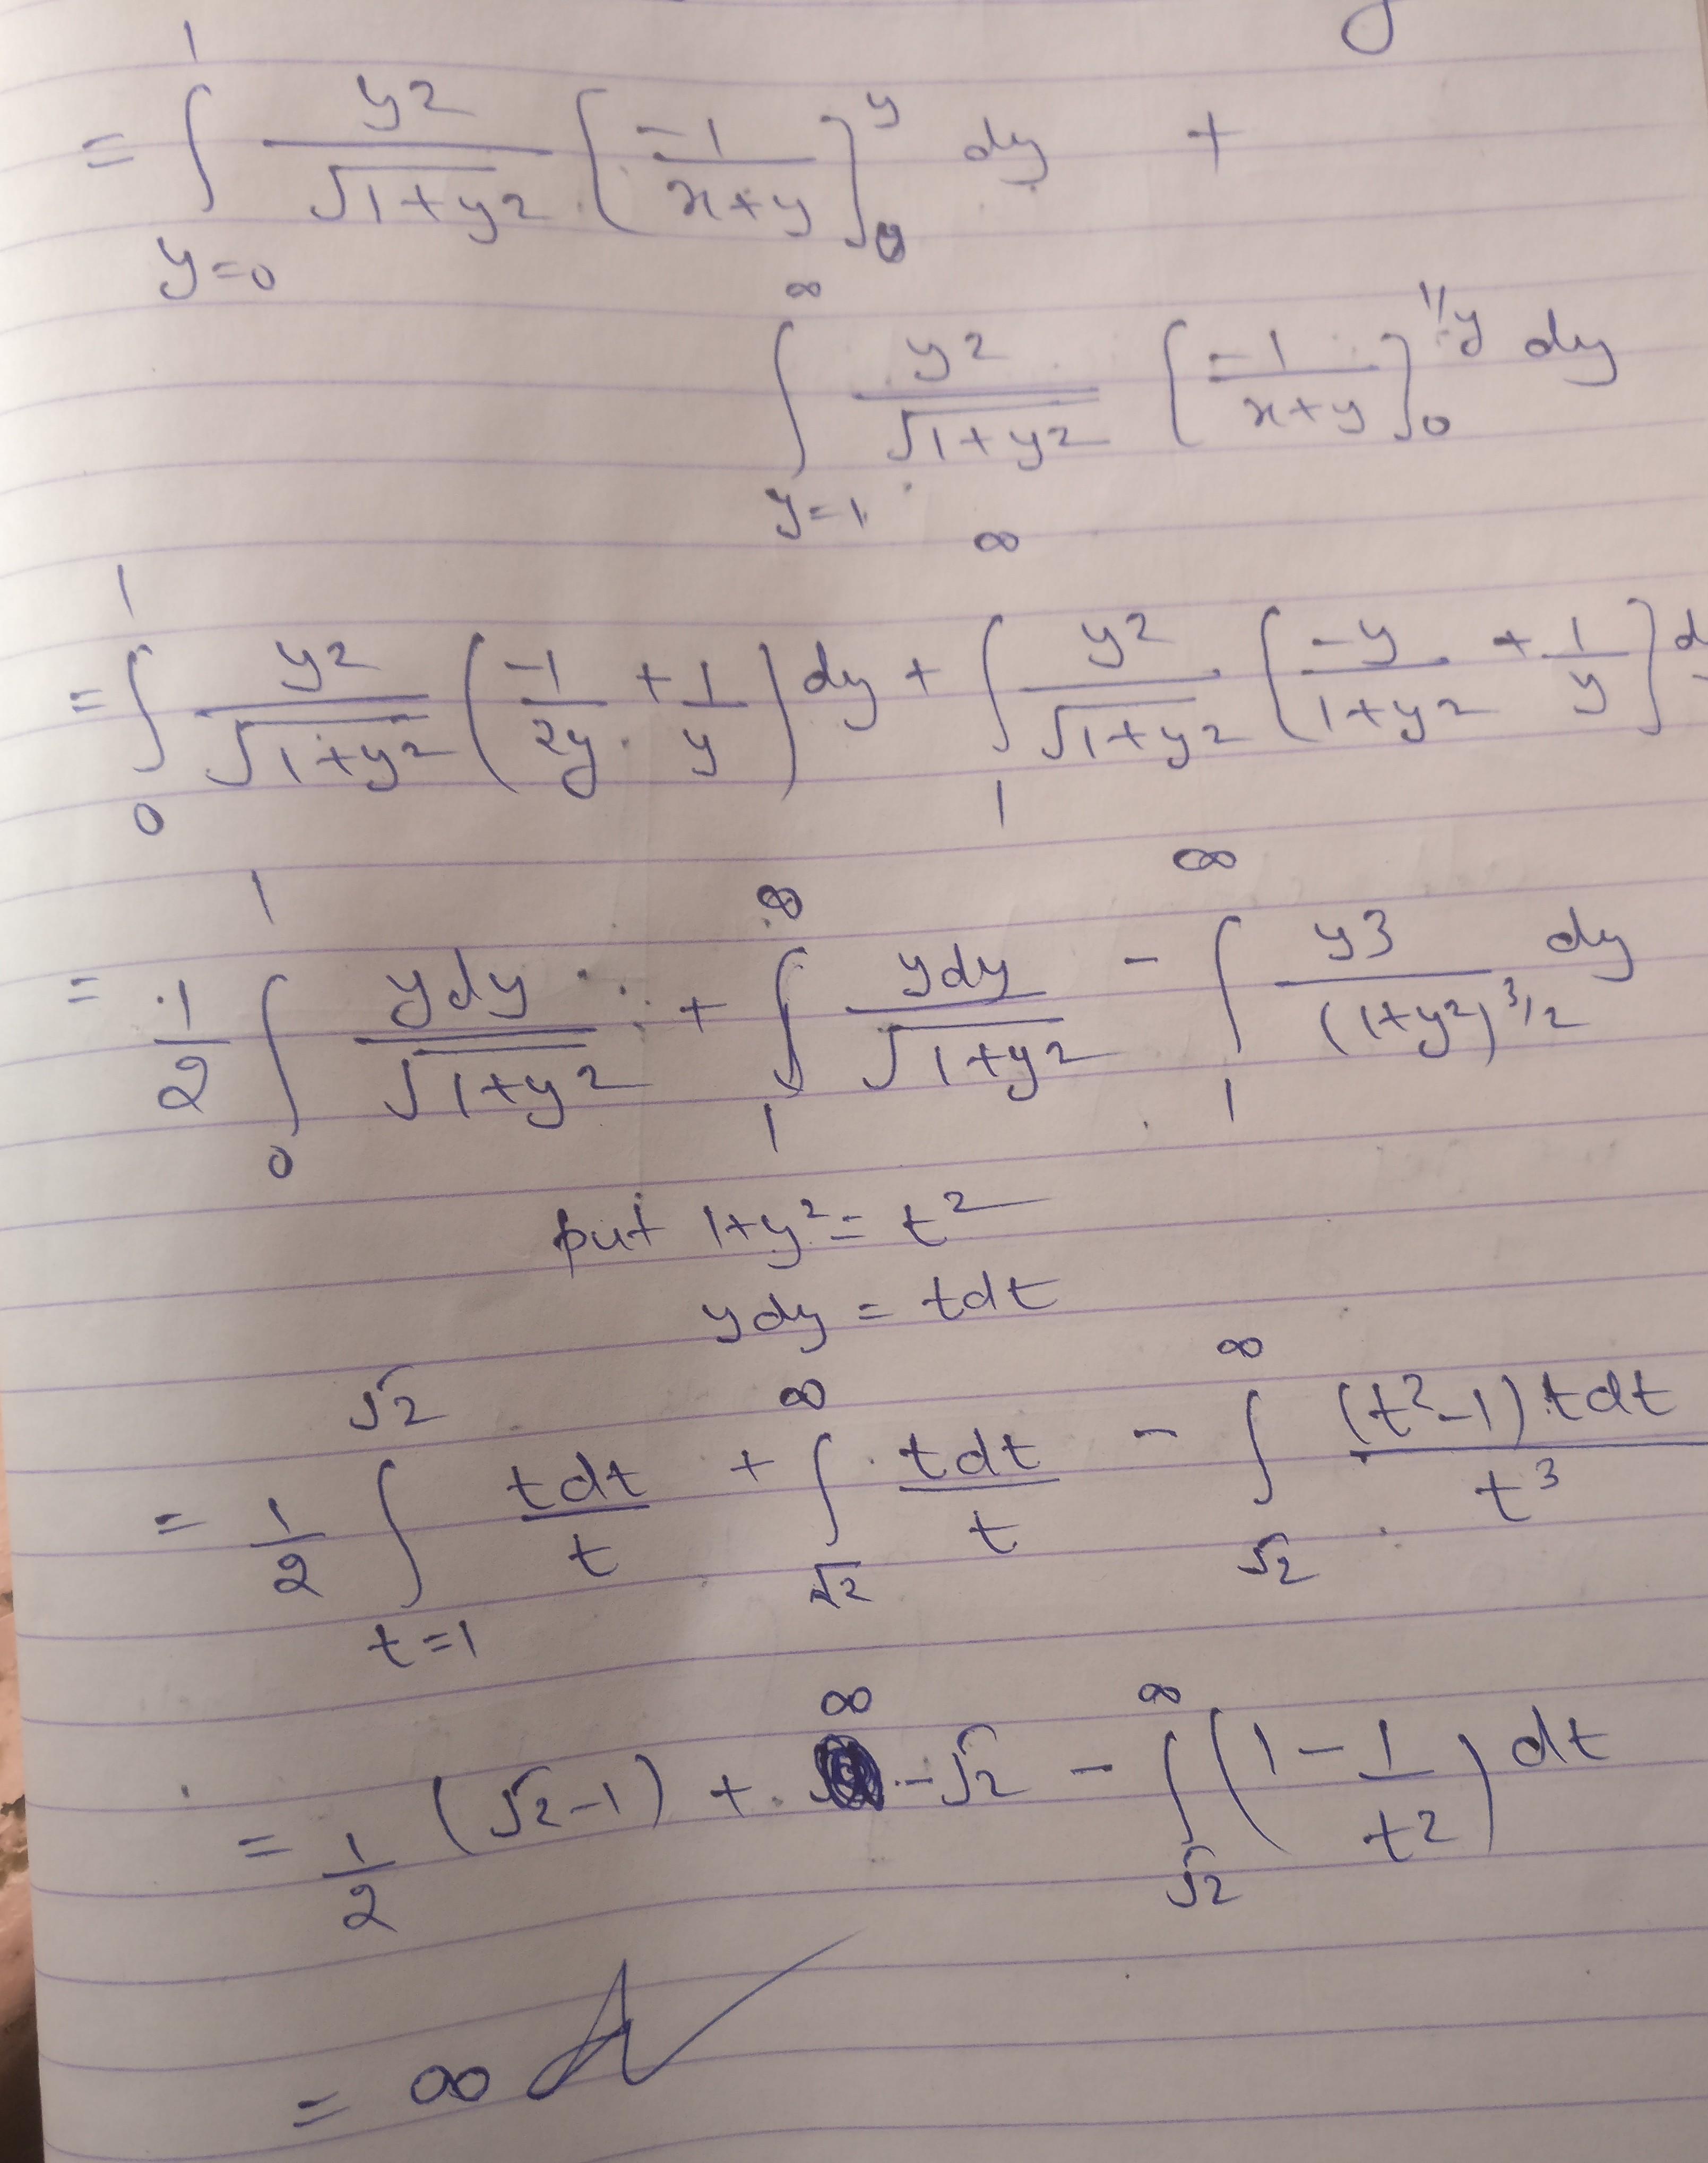 = ∫_{y=0}^{1} y²/√(1+y²) [-1/(x+y)]_0^y dy +
∫_{y=1}^{∞} y²/√(1+y²) [-1/(x+y)]_0^{1/y} dy
= ∫_0^1 y²/√(1+y²) (-1/2y + 1/y) dy + ∫_1^∞ y²/√(1+y²) [-y/(1+y²) + 1/y] d
= 1/2 ∫_0^1 ydy/√(1+y²) + ∫_1^∞ ydy/√(1+y²) - ∫_1^∞ y³/(1+y²)^{3/2} dy
put 1+y² = t²
ydy = tdt
= 1/2 ∫_{t=1}^{√2} tdt/t + ∫_{√2}^∞ tdt/t - ∫_{√2}^∞ (t²-1)tdt/t³
= 1/2 (√2-1) + ∞ - √2 - ∫_{√2}^∞ (1 - 1/t²) dt
= ∞